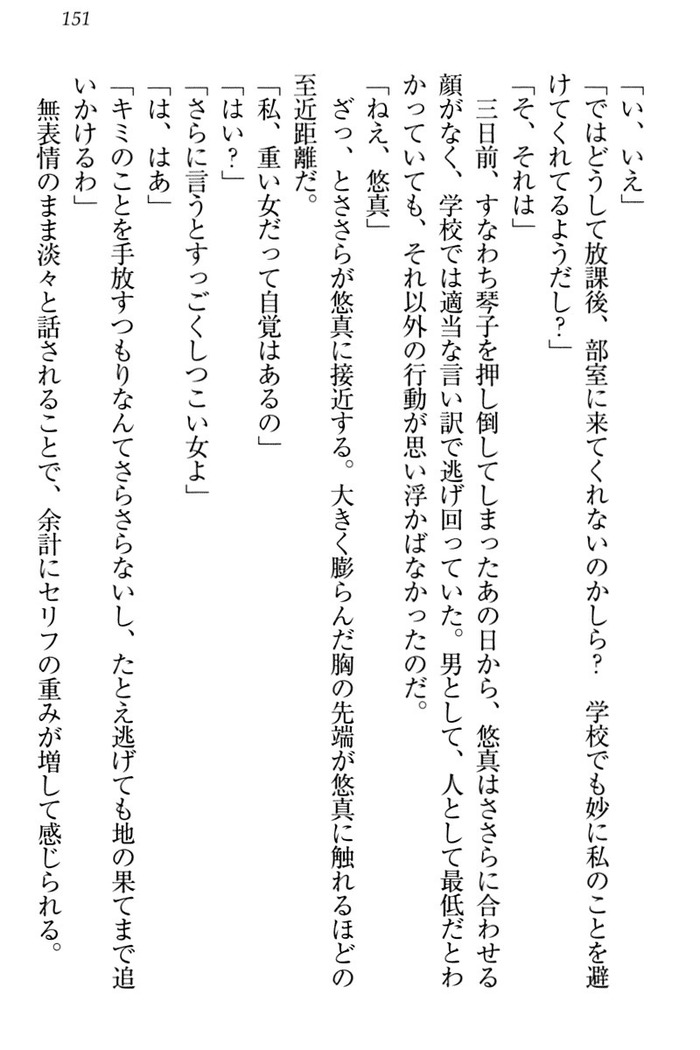 151
「い、いえ」
「ではどうして放課後、部室に来てくれないのかしら？　学校でも妙に私のことを避
けてくれてるようだし？」
「そ、それは」
三日前、すなわち琴子を押し倒してしまったあの日から、悠真はささらに合わせる
顔がなく、学校では適当な言い訳で逃げ回っていた。男として、人として最低だとわ
かっていても、それ以外の行動が思い浮かばなかったのだ。
「ねえ、悠真」
ざっ、とささらが悠真に接近する。大きく膨らんだ胸の先端が悠真に触れるほどの
至近距離だ。
「私、重い女だって自覚はあるの」
「はい？」
「さらに言うとすっごくしつこい女よ」
「は、はあ」
「キミのことを手放すつもりなんてさらさらないし、たとえ逃げても地の果てまで追
いかけるわ」
無表情のまま淡々と話されることで、余計にセリフの重みが増して感じられる。